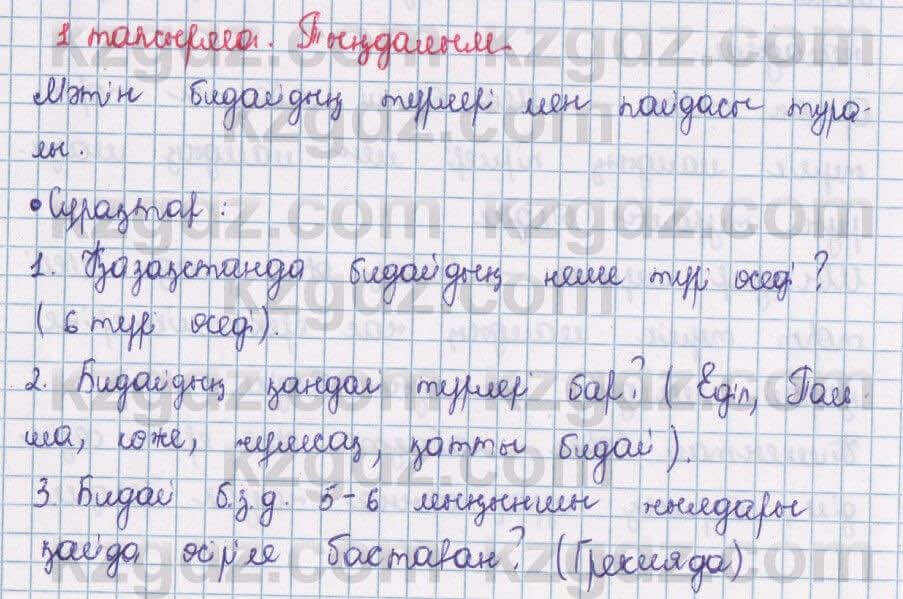 1 тапсырма. Тыңдалым.
Мәтін бидайдың түрлері мен пайдасы тура-
лы.
• Сұрақтар:
1. Қазақстанда бидайдың неше түрі өседі?
(6 түрі өседі).
2. Бидайдың қандай түрлері бар? (Еділ, Таң
ша, көже, жұмсақ, қатты бидай).
3. Бидай б.з.д. 5-6 мыңыншы жылдары
қайда өсіріле бастаған? (Грекияда)
kzgdz.com